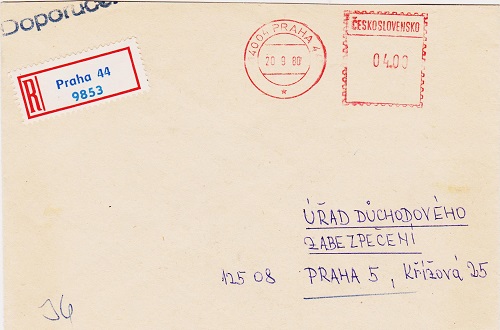 Doporuče
R Praha 44
9853
4004 PRAHA 4
20 9 80
ČESKOSLOVENSKO
04.00
ÚŘAD DŮCHODOVÉHO
ZABEZPEČENÍ
125 08 PRAHA 5, Křížová 25